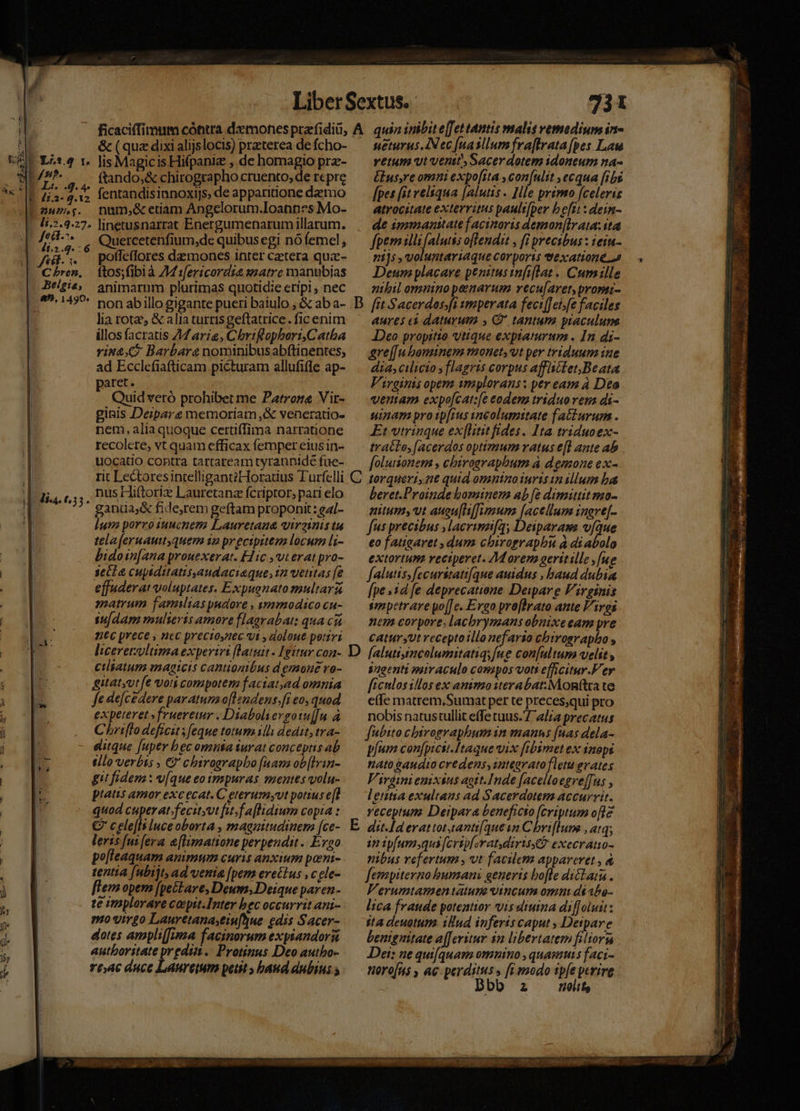 Liber Sextus. 731
ficacissimum cōntra dæmones præsidiū,
& (quæ dixi alijs locis) præterea de scho-
lis Magicis Hispaniæ, de homagio præ-
stando, & chirographo cruento, de repre
sentandis innoxijs, de apparitione dæmo
num, & etiam Angelorum. Ioannes Mo-
linetus narrat Energumenarum illarum,
Quercetensium, de quibus egi nō semel,
possessores dæmones inter cætera quæ-
stos, sibi à Misericordiæ matre manubias
animarum plurimas quotidie eripi, nec
non ab illo gigante pueri baiulo, & ab a-
lia rotæ, & alia turris gestatrice. sic enim
illos sacratis Mariæ, Christophori, Catha
rinæ, & Barbaræ nominibus abstinentes,
ad Ecclesiasticam picturam allusisse ap-
paret.
Quid verò prohibet me Patronæ Vir-
ginis Deiparæ memoriam, & veneratio-
nem, alia quoque certissima narratione
recolere, vt quam efficax semper eius in-
uocatio contra tartaream tyrannidē fue-
rit Lectores intelligant? Horatius Tursellinus
Historiæ Lauretanæ scriptor, pari elo
gantia, & fide, rem gestam proponit: gal-
lum porro iuuenem Lauretanæ virginis tu
tela seruauit, quem in præcipitem locum li-
bido insana prouexerat. Hic, vt erat pro-
iectæ cupiditatis, audaciæque, in vetitas se
effuderat voluptates. Expugnato multarū
matrum familias pudore, immodico cu-
iusdam mulieris amore flagrabat: qua cū
nec prece, nec precio, nec vi, dolòue potiri
liceret: vltima experiri statuit. Igitur con-
ciliatum magicis cantionibus dæmonē ro-
gitat, vt se voti compotem faciat, ad omnia
se de se cedere paratum ostendens, si eo, quod
expeteret, frueretur. Diaboli ergo iussu à
Christo desciscit, seque totum illi dedit, tra-
ditque super hæc omnia iurat conceptis ab
illo verbis, & chirographo suam obstrin-
git fidem: vsque eo impuras mentes volu-
ptatis amor excæcat. Ceterum, vt potius est
quod cuperat, fecit, vt fit, fastidium copia:
& celesti luce oborta, magnitudinem sce-
leris sui sera æstimatione perpendit. Ergo
posteaquam animum curis anxium pœni-
tentia subijt, ad veniæ spem erectus, cele-
stem opem spectare, Deum, Deique paren-
tē implorare cœpit. Inter hæc occurrit ani-
mo virgo Lauretana, eiusque ædis Sacer-
dotes amplissima facinorum expiandorū
authoritate prediti. Protinus Deo autho-
re, ac duce Lauretum petit, haud dubius,
A quin inibi esset tantis malis remedium in-
uēturus. Nec sua illum frustrata spes Lau
retum vt venit, Sacerdotem idoneum na-
ctus, re omni exposita, consulit, ecqua sibi
spes sit reliqua salutis. Ille primo sceleris
atrocitate exterritus paulisper hesit: dein-
de immanitate facinoris demonstrata: ita
spem illi salutis ostendit, si precibus: ieiu-
nijs, voluntariaque corporis vexatione
Deum placare penitus insistat. Cum ille
nihil omnino pœnarum recusaret, promi-
B sit Sacerdos, si imperata fecisset, se faciles
aures ei daturum, & tantum piaculum
Deo propitio vtique expiaturum. In di-
gressu hominem monet, vt per triduum ine
dia, cilicio, flagris corpus afflictet, Beatæ
Virginis opem implorans: per eam à Deo
veniam exposcat: se eodem triduo rem di-
uinam pro ipsius incolumitate facturum.
Et vtrinque exstitit fides. Ita triduo ex-
tracto, sacerdos optimum ratus est ante ab
solutionem, chirographum à dæmone ex-
C torqueri, ne quid omnino iuris in illum ha
beret. Proinde hominem ab se dimittit mo-
nitum, vt augustissimum sacellum ingres-
sus precibus, lacrimisq; Deiparam vsque
eo fatigaret, dum chirographū à diabolo
extortum reciperet. Morem gerit ille, suæ
salutis, securitatisque auidus, haud dubia
spe, id se deprecatione Deiparæ Virginis
impetrare posse. Ergo prostrato ante Virgi
nem corpore, lachrymans obnixe eam pre
catur, vt recepto illo nefario chirographo,
D saluti, incolumitatiq; suæ consultum velit,
ingenti miraculo compos voti efficitur. Ver
siculos illos ex animo iterabat: Monstra te
esse matrem, Sumat per te preces, qui pro
nobis natus tulit esse tuus. Talia precatus
subito chirographum in manus suas dela-
psum conspicit. Itaque vix sibimet ex inopi
nato gaudio credens, integrato fletu grates
Virgini enixius agit. Inde sacello egressus,
letitia exultans ad Sacerdotem accurrit.
receptum Deiparæ beneficio scriptum ostē
E dit. Id erat tot, tantisque in Christum, atq;
in ipsum, qui scripserat, diris, & execratio-
nibus refertum, vt facilem appareret, à
sempiterno humani generis hoste dictatū.
Verumtamen tatum vincum omni diabo-
lica fraude potentior vis diuina dissoluit:
ita deuotum illud inferis caput, Deiparæ
benignitate asseritur in libertatem filiorū
Dei: ne quisquam omnino, quamuis faci-
norosus, ac perditus, si modo ipse perire
Bbb 2 nolit,